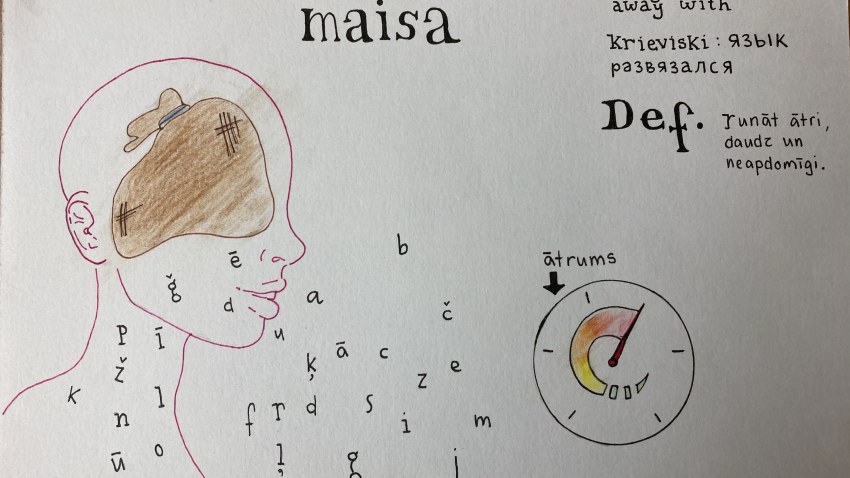 maisa
away with
Krieviski: язык
развязался
Def.
runāt ātri,
daudz un
neapdomīgi.
ātrums
b
ē
ǧ
d a
č
p ī u
ā c
ž ķ e
z
k l d s
f r i m
n
ū o ļ g j